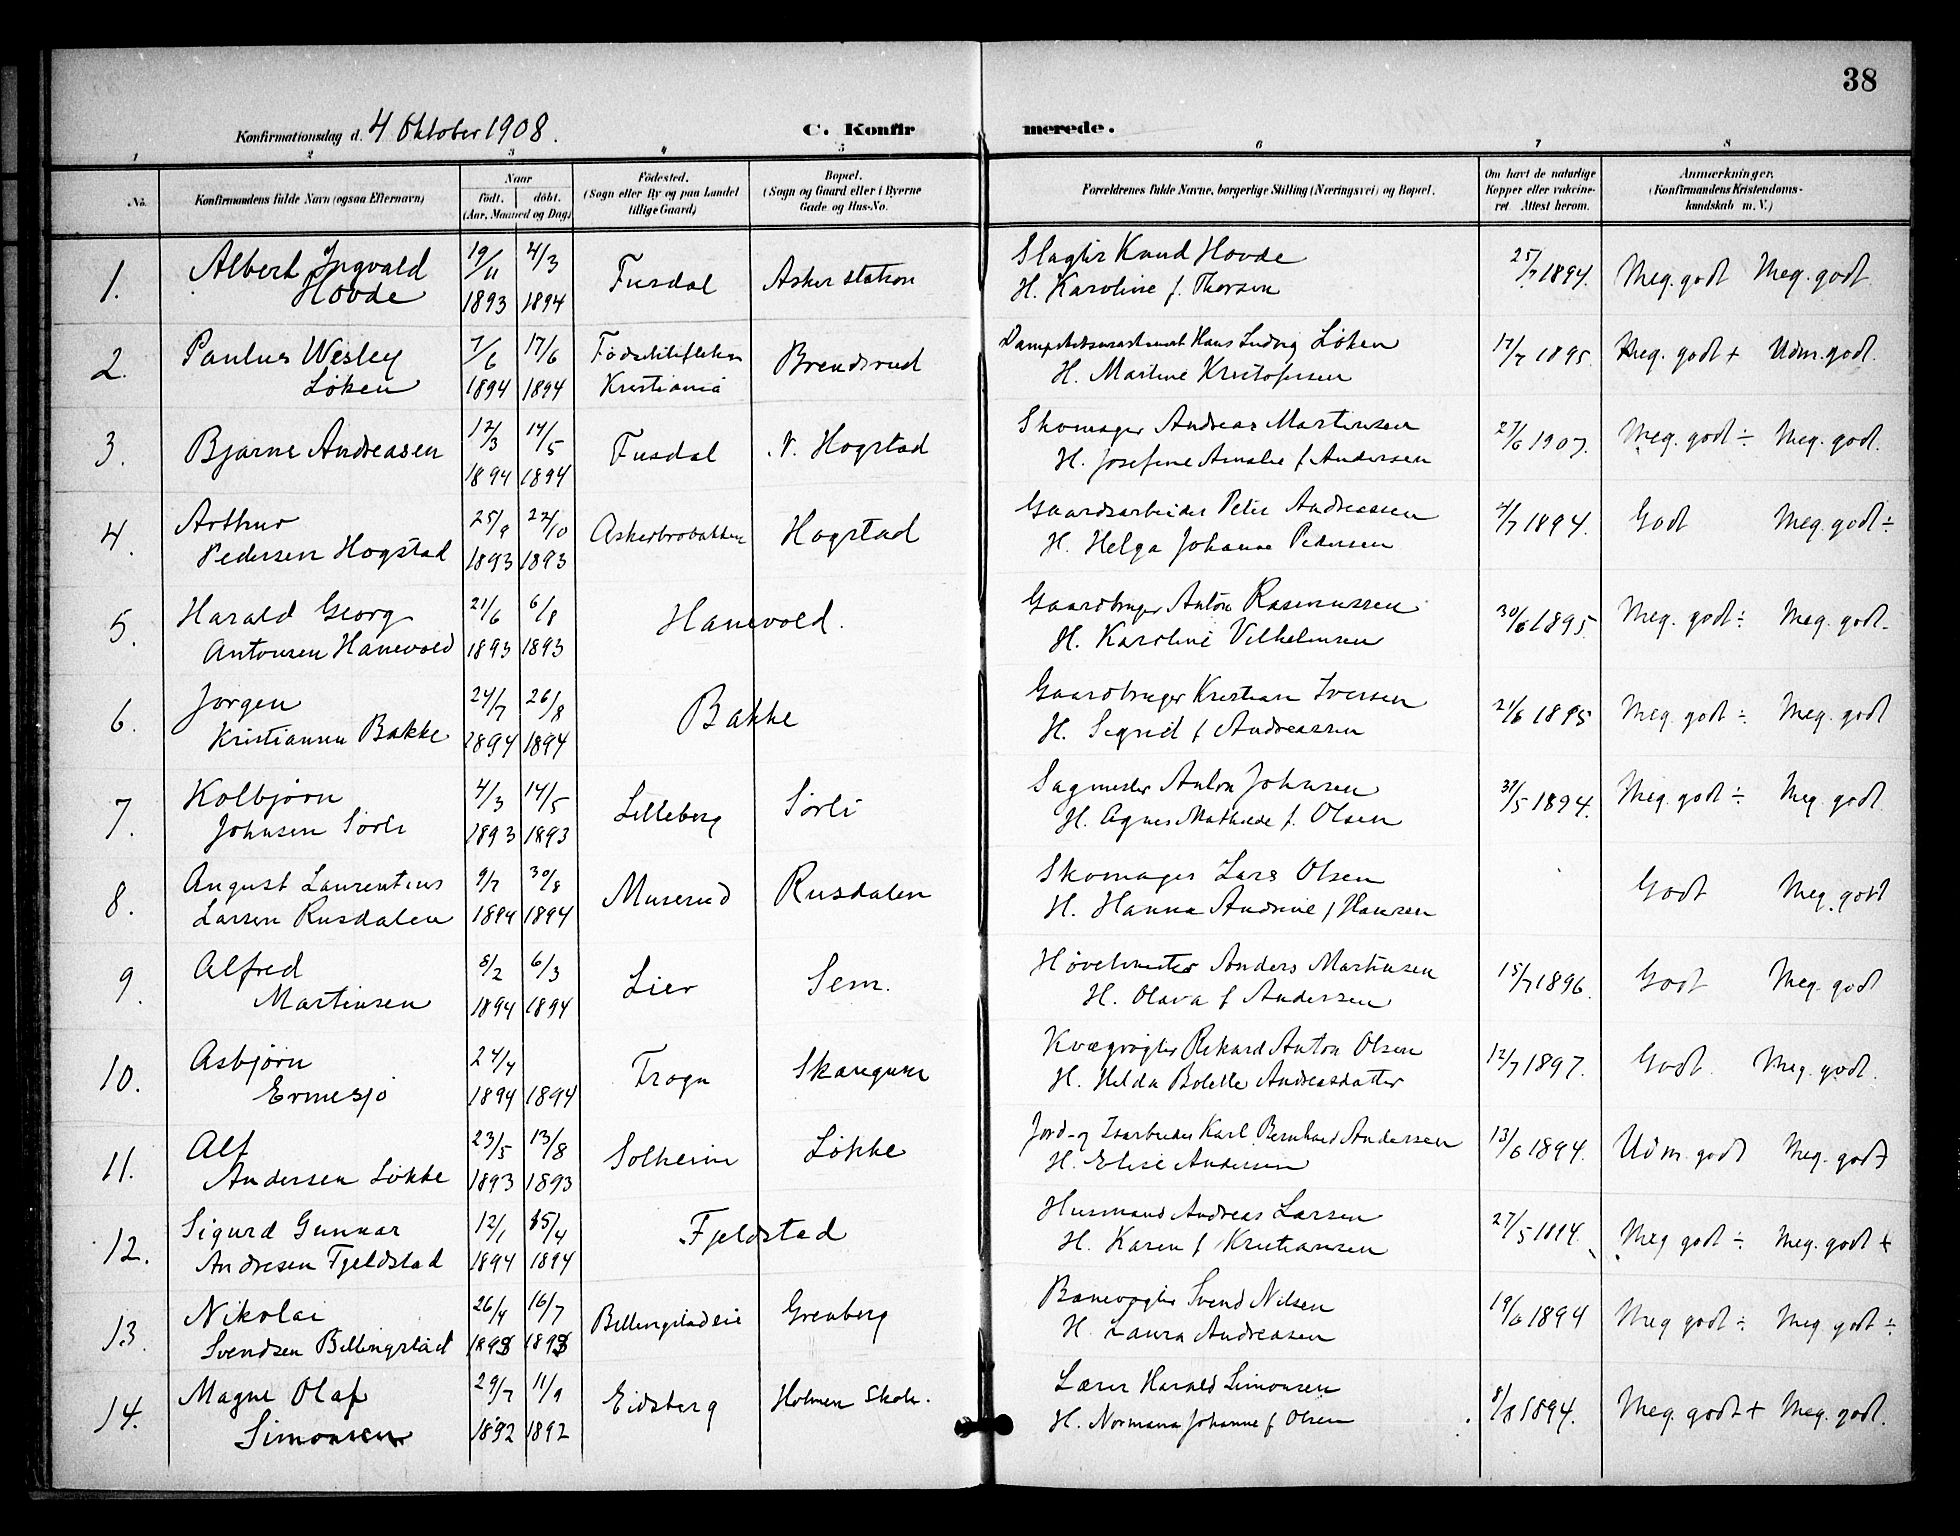 38
Konfirmationsdag d. 4 Oktober 1908.
C. Konfirmerede.
1 2 3 4 5 6 7 8
No.
Konfirmandens fulde Navn (ogsaa Efternavn)
Naar
født. døbt.
(Aar, Maaned og Dag)
Fødested.
(Sogn eller By og paa Landet
tillige Gaard)
Bopæl.
(Sogn og Gaard eller i Byerne
Gade og Hus-No.
Forældrenes fulde Navne, borgerlige Stilling (Næringsvei) og Bopæl.
Om havt de naturlige
Kopper eller vaccine-
ret. Attest herom.
Anmærkninger.
(Konfirmandens Kristendoms-
kundskab m. V.)
1. Albert Ingvald 19/11 4/3 Fusdal Asker station Slagter Knud Hovde 25/7 1894. Meg. godt Meg. godt
Hovde 1893 1894 H. Karoline f. Thorsen
2. Paulus Wesley 7/6 17/6 Brendsrud Hans Ludvig Løken 17/7 1895 Meg. godt + Udm. godt.
Løken 1894 1894 Kristiania H. Martine Kristofersen
3. Bjarne Andreasen 12/3 14/5 Fusdal N. Hogstad Skomager Andreas Martinsen 27/6 1907. Meg. godt ÷ Meg. godt.
1894 1894 H. Josefine Amalie f Andersen
4. Arthur 25/9 22/10 Askerbrobakken Hogstad Gaardsarbeider Peter Andreassen 4/7 1894. Godt Meg. godt ÷
Pedersen Hogstad 1893 1893 H. Helga Johanne Pedersen
5. Harald Georg 21/6 6/8 Hanevold. Gaardbruger Anton Rasmussen 30/6 1895 Meg. godt ÷ Meg. godt
Antonsen Hanevold 1893 1893 H. Karoline Vilhelmsen
6. Jørgen 24/7 26/8 Bakke Gaardbruger Kristian Iversen 21/6 1895 Meg. godt ÷ Meg. godt
Kristiansen Bakke 1894 1894 H. Sigrid f Andreassen
7. Kolbjørn 4/3 14/5 Lilleberg Sørli Sagmester Anton Johnsen 31/5 1894. Meg. godt ÷ Meg. godt
Johnsen Sørli 1893 1893 H. Agnes Mathilde f. Olsen
8. August Laurentius 9/7 30/8 Muserud Rusdalen Skomager Lars Olsen Godt Meg. godt
Larsen Rusdalen 1894 1894 H. Hanna Andrine f Hansen
9. Alfred 8/2 6/3 Lier Sem. Høvelmester Anders Martinsen 15/7 1896. Godt Meg. godt
Martinsen 1894 1894 H. Olava f Andersen
10. Asbjørn 24/4 Frogn Skaugum Kvægrøgter Rikard Anton Olsen 12/7 1897. Godt. Meg. godt.
Ermesjø 1894 1894 H. Hilda Bolette Andreasdatter
11. Alf 23/5 13/8 Solheim Løkke Jord- og Isarbeider Karl Bernhard Andersen 13/6 1894. Udm. godt Meg. godt
Andersen Løkke 1893 1893 H. Elise Andersen
12. Sigurd Gunnar 12/1 15/4 Fjeldstad Husmand Andreas Larsen 27/5 Meg godt ÷ Meg. godt +
Andresen Fjeldstad 1894 1894 H. Karen f Kristiansen
13. Nikolai 26/4 16/7 Billingstadeie Grenberg Banevogter Svend Nilsen 19/6 1894 Meg godt ÷ Meg. godt ÷
Svendsen Billingstad 1893 1893 H. Laura Andreasen
14. Magne Olaf 29/7 11/9 Eidsberg Holmen Skole. Lærer Harald Simonsen 8/8 1894. Meg. godt + Meg. godt.
Simonsen 1892 1892 H. Normana Johanne f Olsen